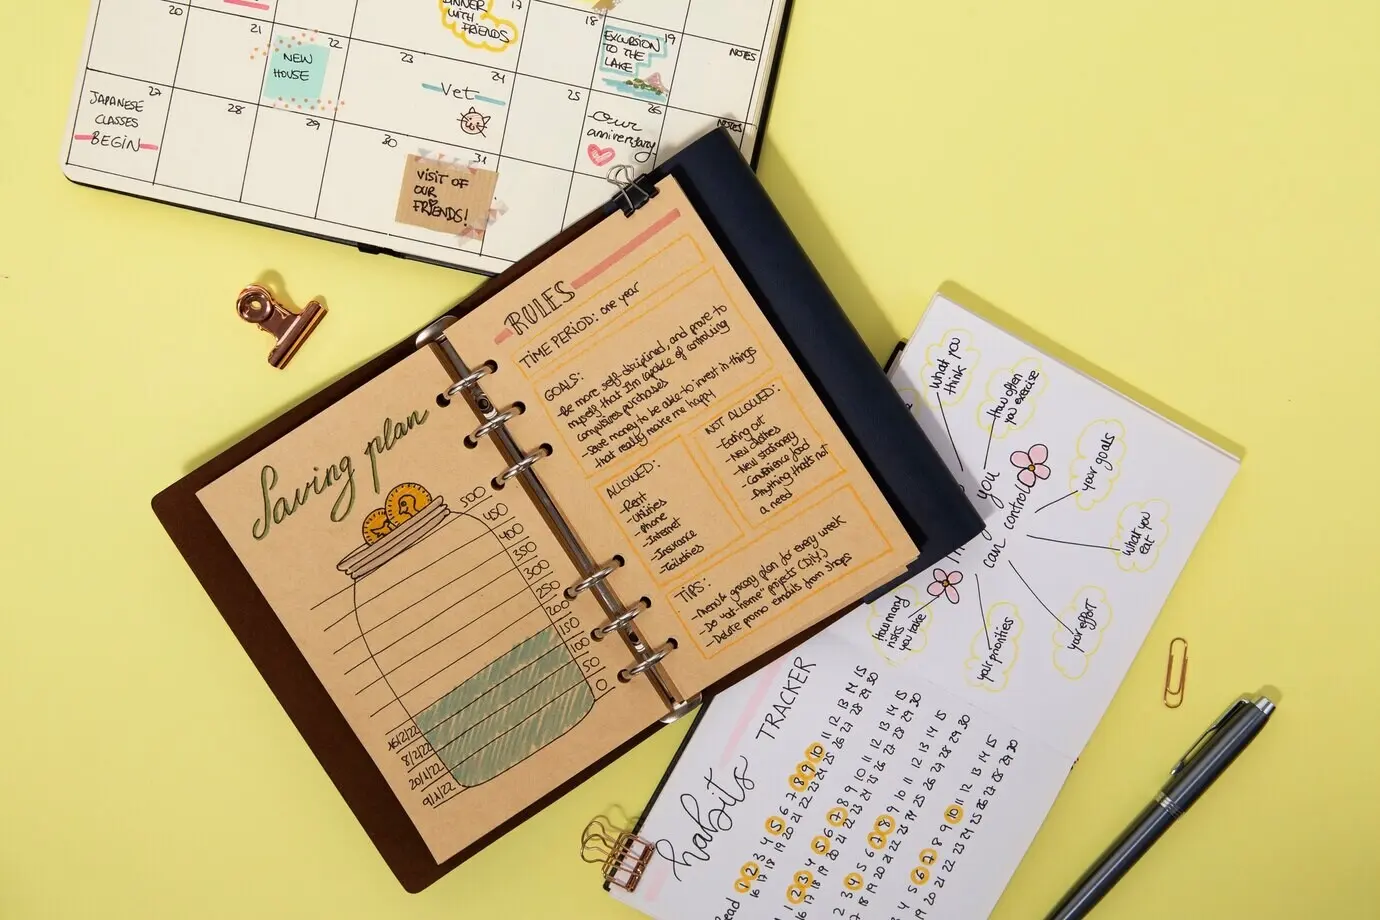 17
DINNER
WITH
FRIENDS
18
19
EXCURSION
TO THE
LAKE
NOTES
20
21
22
NEW
HOUSE
23
24
Vet
25
26
Our
anniversary
NOTES
27
JAPANESE
CLASSES
BEGIN
28
29
30
31
VISIT OF
OUR
FRIENDS!
Saving plan
500
450
400
350
300
250
200
150
100
50
0
RULES
TIME PERIOD: one year
GOALS:
-Be more self-disciplined, and prove to
myself that I'm capable of controlling
compulsive purchases
-Save money to be able to invest in things
that really make me happy
ALLOWED:
-Rent
-Utilities
-Phone
-Internet
-Insurance
-Toiletries
NOT ALLOWED:
-Eating out
-New clothes
-New stationery
-Convenience food
-Anything that's not
a need
TIPS:
-Menu & grocery plan for every week
-Do "at-home" projects (D.I.Y.)
-Delete promo emails from shops
What you
think
How often
you exercise
your goals
What you
eat
your effort
your priorities
How many
risks
you take
you
can control
habits
TRACKER
1 2 3 4 5 6 7 8 9 10 11 12 13 14 15
16 17 18 19 20 21 22 23 24 25 26 27 28 29 30
1 2 3 4 5 6 7 8 9 10 11 12 13 14 15
16 17 18 19 20 21 22 23 24 25 26 27 28 29 30
2 3 4 5 6 7 8 9 10 11 12 13 14 15
17 18 19 20 21 22 23 24 25 26 27 28 29 30
4 5 6 7 8 9 10 11 12 13 14 15
19 20 21 22 23 24 25 26 27 28 29 30